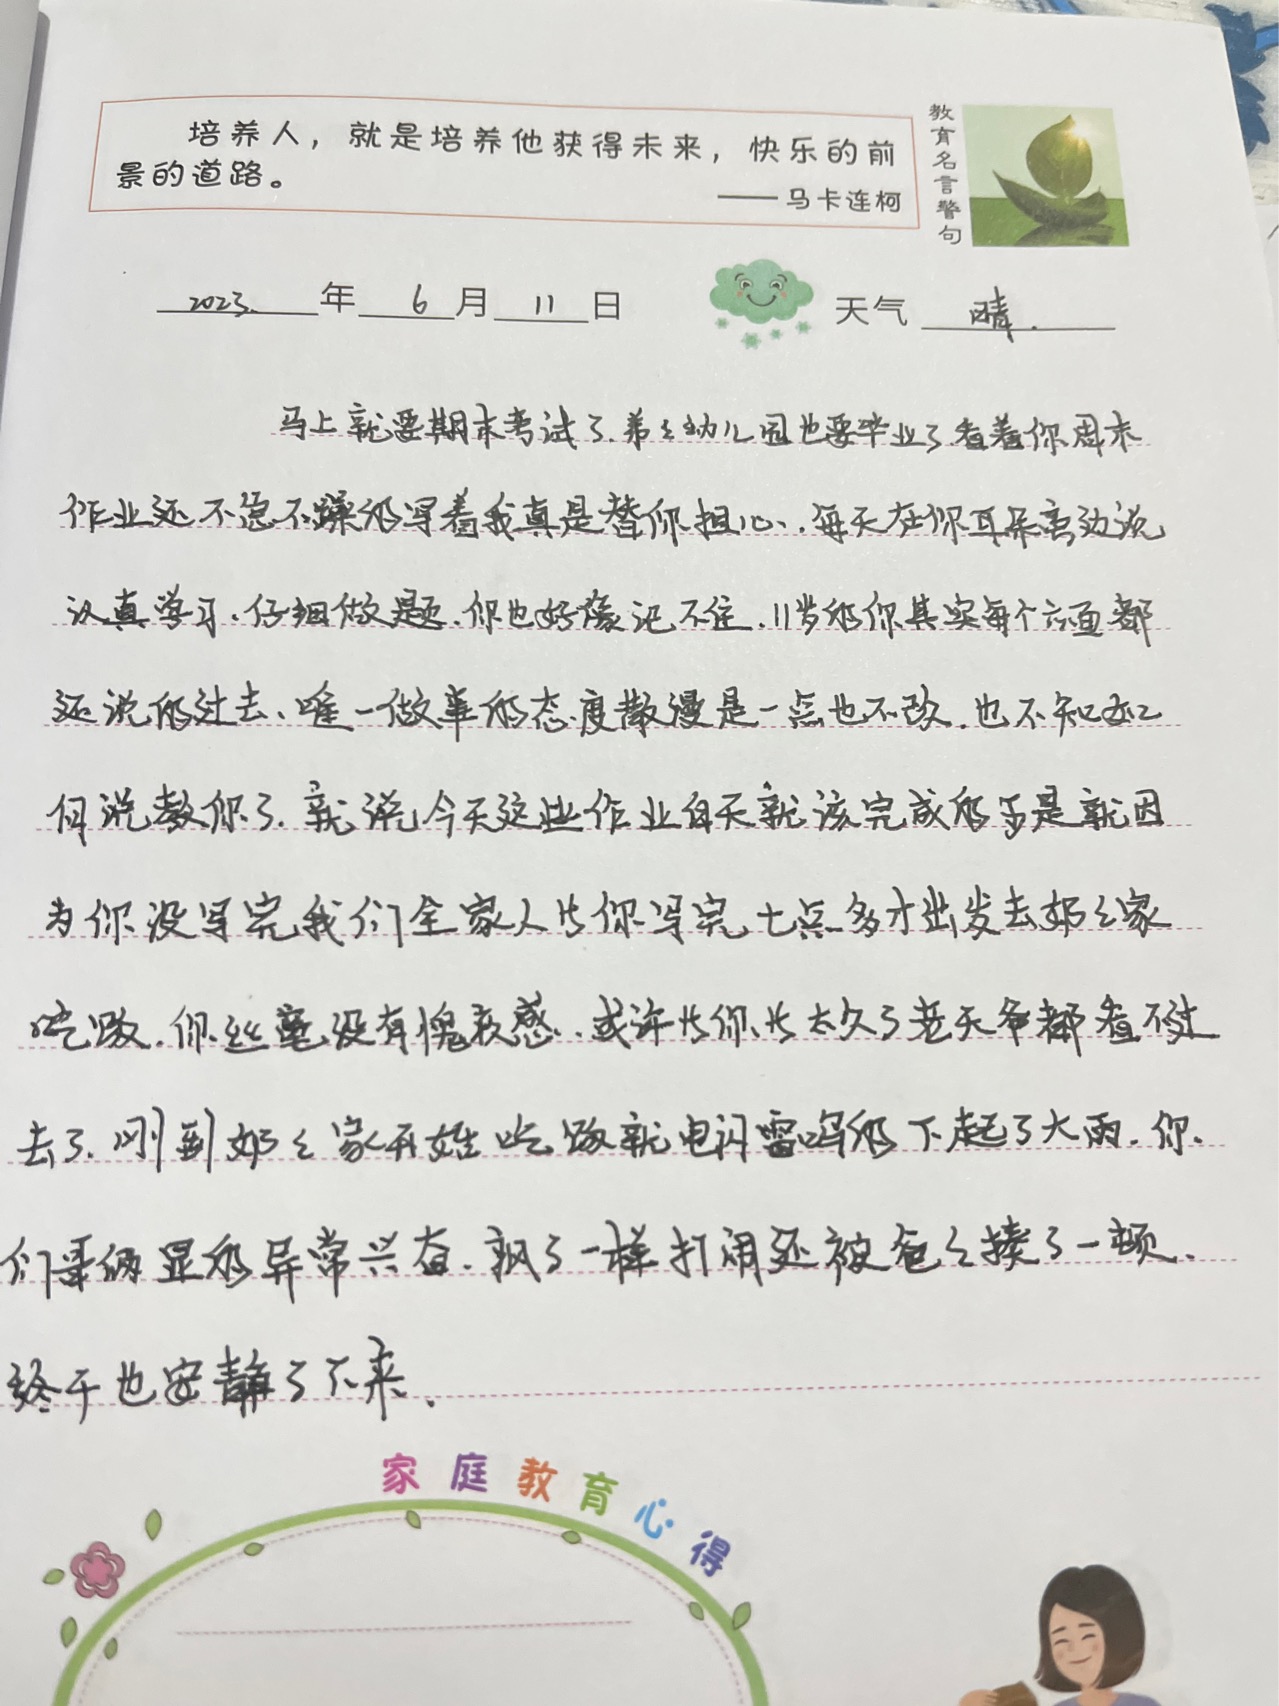 培养人，就是培养他获得未来，快乐的前
景的道路。
——马卡连柯
教育名言警句
2023.年6月11日
天气 晴.
马上就要期末考试了.弟弟幼儿园也要毕业了看着你周末
作业还不急不躁的写着我真是替你担心.每天在你耳朵旁边说
认真学习.仔细做题.你也好像记不住.11岁的你其实每个方面都
还说的过去、唯一做事的态度散漫是一点也不改.也不知如
何说教你了.就说今天这些作业白天就该完成的于是就因
为你没写完我们全家人等你写完七点多才出发去奶奶家
吃饭.你丝毫没有愧疚感.或许等你等太久了老天爷都看不过
去了.刚到奶奶家开始吃饭就电闪雷鸣的下起了大雨.你
们哥俩显的异常兴奋.疯了一样打闹还被爸爸揍了一顿.
终于也安静了下来.
家庭教育心得